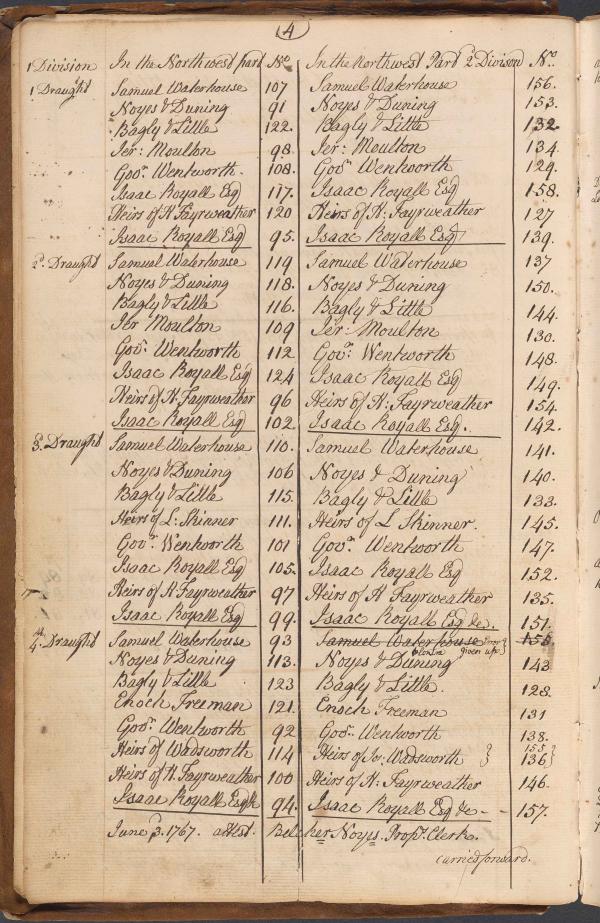 4
1 Division In the Northwest part No. In the Northwest Part 2 Division No.
1 Draught Samuel Waterhouse 107 Samuel Waterhouse 156.
Noyes & Duning 91 Noyes & Duning 153.
Bagly & Little 122. Bagly & Little 132.
Jer: Moulton 98 Jer: Moulton 134.
Gov.r Wentworth. 108. Gov.r Wentworth 129.
Isaac Royall Esq 117. Isaac Royall Esq 158.
Heirs of H Fayrweather 120 Heirs of H: Fayrweather 127
Isaac Royall Esq 95. Isaac Royall Esq 139.
2.d Draught Samuel Waterhouse 119 Samuel Waterhouse 137
Noyes & Duning 118. Noyes & Duning 150.
Bagly & Little 116. Bagly & Little 144.
Jer Moulton 109 Jer: Moulton 130.
Gov.r Wentworth 112 Gov.r Wentworth 148.
Isaac Royall Esq 124 Isaac Royall Esq 149.
Heirs of H: Fayrweather 96 Heirs of H: Fayrweather 154.
Isaac Royall Esq 102. Isaac Royall Esq. 142.
3. Draught Samuel Waterhouse 110. Samuel Waterhouse 141.
Noyes & Duning 106 Noyes & Duning 140.
Bagly & Little 115. Bagly & Little 133.
Heirs of L: Skinner 111. Heirs of L Skinner. 145.
Gov.r Wentworth 101 Gov.r Wentworth 147.
Isaac Royall Esq 105. Isaac Royall Esq 152.
Heirs of H Fayrweather 97 Heirs of H Fayrweather 135.
Isaac Royall Esq 99. Isaac Royall Esq &c. 151.
4.th Draught Samuel Waterhouse 93 Samuel Waterhouse 155
given up
Noyes & Duning 113. Noyes & Duning 143
Bagly & Little 123 Bagly & Little. 128.
Enoch Freeman 121. Enoch Freeman 131
Gov.r Wentworth 92 Gov.r Wentworth 138.
155
Heirs of Wadsworth 114 Heirs of Jo: Wadsworth } 136 }
Heirs of H. Fayrweather 100 Heirs of H: Fayrweather 146.
Isaac Royall Esq &c 94. Isaac Royall Esq &c - - 157.
June 3. 1767. attest. Belcher Noyes. Prop.rs Clerk.
carried forward.